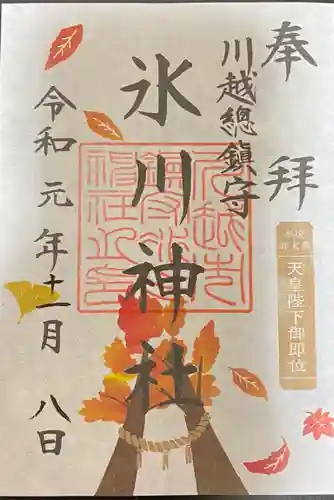 奉拜
川越總鎮守
氷川神社
天皇陛下御即位
令和元年十一月八日